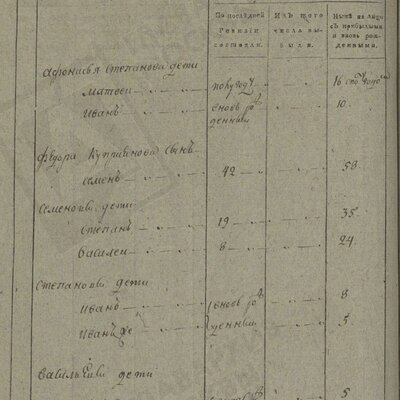 По последней Ревизіи состояли.
Изъ того числа выбыли.
Нынѣ на лицо съ прибылыми и вновь рожденными.
Афонасья Степанова дети
Матвеи полугоду 16
Иванъ вновь рожденный 10
Федора Куприянова сынъ
Семенъ 42 58
Семеновы дети
Степанъ 19 35
Василеи 8 24
Степановы дети
Иванъ вновь ро 8
Иванъ же жденныи 5
Васильевы дети
5